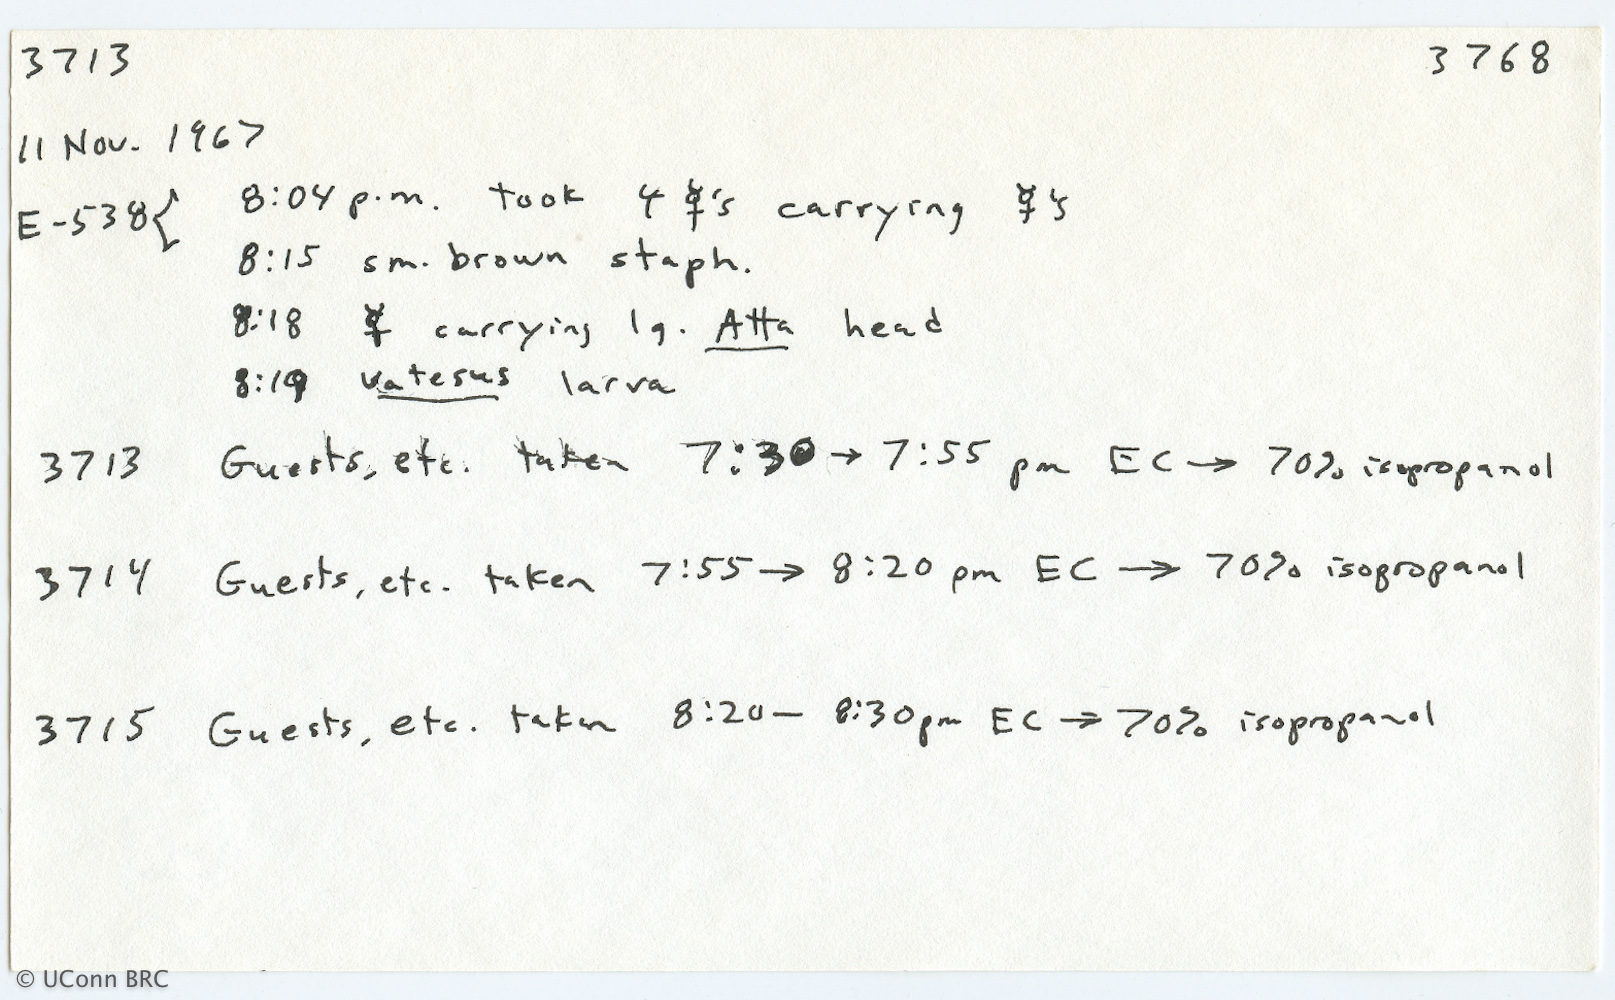 3713 3768
11 Nov. 1967
E-538{ 8:04 p.m. took 4 ☿'s carrying ☿'s
8:15 sm. brown staph.
8:18 ☿ carrying lg. Atta head
8:19 Vatesus larva
3713 Guests, etc. taken 7:30 → 7:55 pm EC → 70% isopropanol
3714 Guests, etc. taken 7:55 → 8:20 pm EC → 70% isopropanol
3715 Guests, etc. taken 8:20 — 8:30 pm EC → 70% isopropanol
© UConn BRC